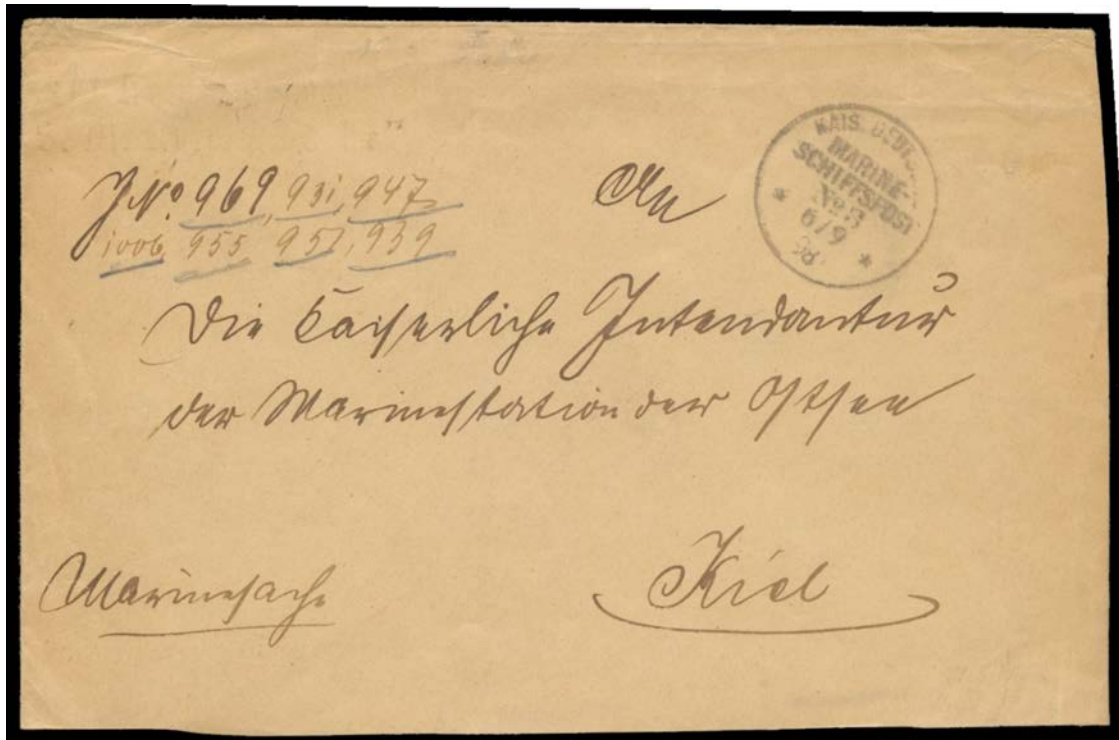 J.No 969, 931, 947
1006 955 957, 939
An
KAIS. DEUT.
MARINE-
SCHIFFSPOST
No
6/9
Die Kaiserliche Intendantur
der Marinestation der Ostsee
Marinesache
Kiel